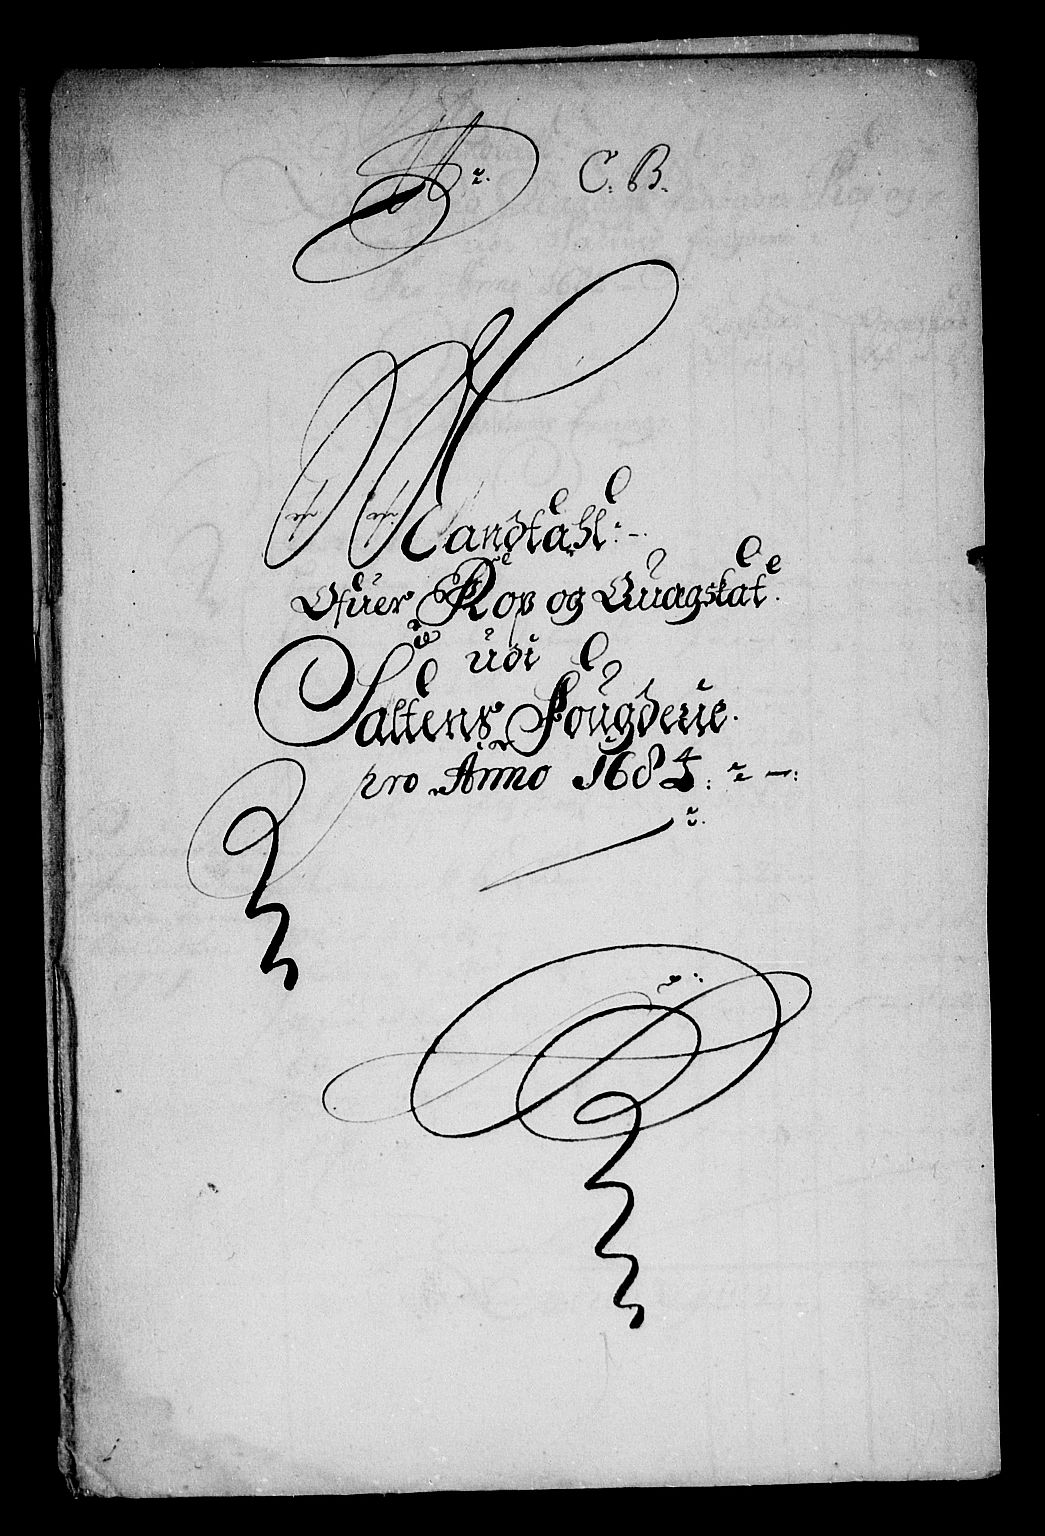 C. B.
Mandtahl
Ofuer Kop og Quagskat
udi
Saltens Fougderie
pro Anno 1684